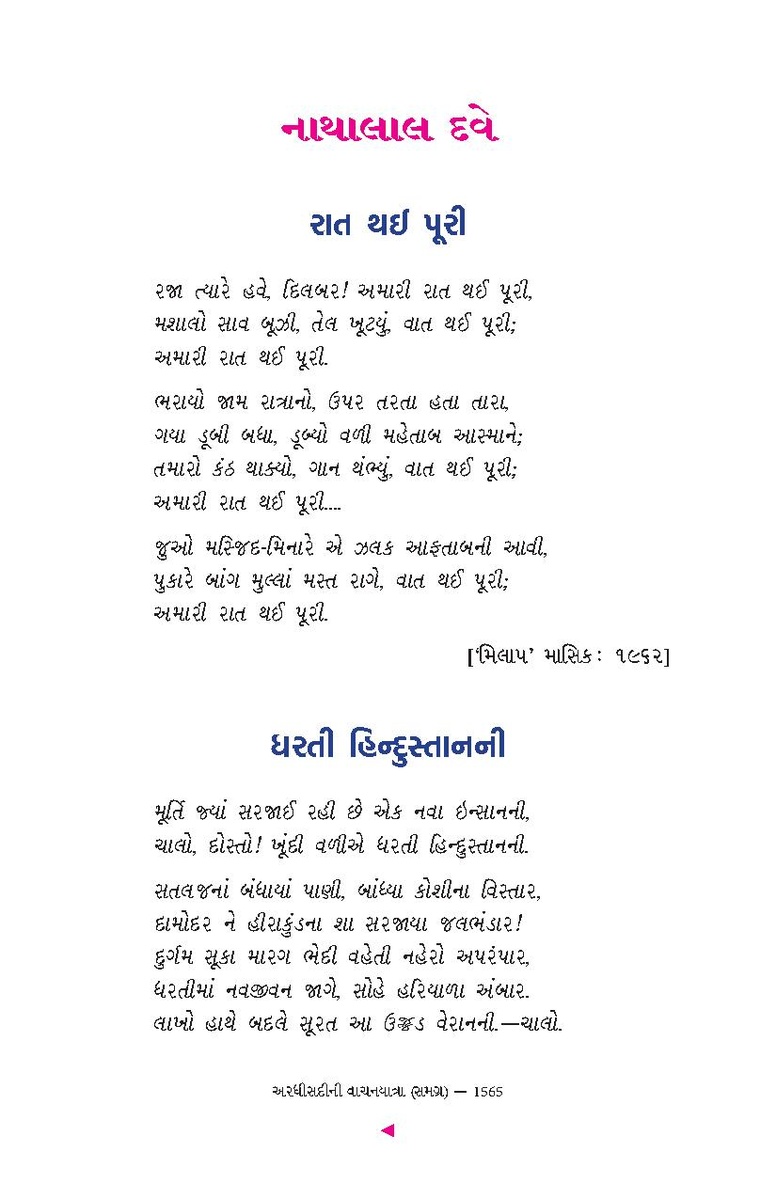 નાથાલાલ દવે
રાત થઈ પૂરી
રજા ત્યારે હવે, દિલબર! અમારી રાત થઈ પૂરી,
મશાલો સાવ બૂઝી, તેલ ખૂટ્યું, વાત થઈ પૂરી;
અમારી રાત થઈ પૂરી.
ભરાયો જામ રાત્રાનો, ઉપર તરતા હતા તારા,
ગયા ડૂબી બધા, ડૂબ્યો વળી મહેતાબ આસ્માને;
તમારો કંઠ થાક્યો, ગાન થંભ્યું, વાત થઈ પૂરી;
અમારી રાત થઈ પૂરી....
જુઓ મસ્જિદ-મિનારે એ ઝલક આફતાબની આવી,
પુકારે બાંગ મુલ્લાં મસ્ત રાગે, વાત થઈ પૂરી;
અમારી રાત થઈ પૂરી.
[‘મિલાપ’ માસિક: ૧૯૬૨]
ધરતી હિન્દુસ્તાનની
મૂર્તિ જ્યાં સરજાઈ રહી છે એક નવા ઇન્સાનની,
ચાલો, દોસ્તો! ખૂંદી વળીએ ધરતી હિન્દુસ્તાનની.
સતલજનાં બંધાયાં પાણી, બાંધ્યા કોશીના વિસ્તાર,
દામોદર ને હીરાકુંડના શા સરજાયા જલભંડાર!
દુર્ગમ સૂકા મારગ ભેદી વહેતી નહેરો અપરંપાર,
ધરતીમાં નવજીવન જાગે, સોહે હરિયાળા અંબાર.
લાખો હાથે બદલે સૂરત આ ઉજ્જડ વેરાનની.—ચાલો.
અરધીસદીની વાચનયાત્રા (સમગ્ર) — 1565